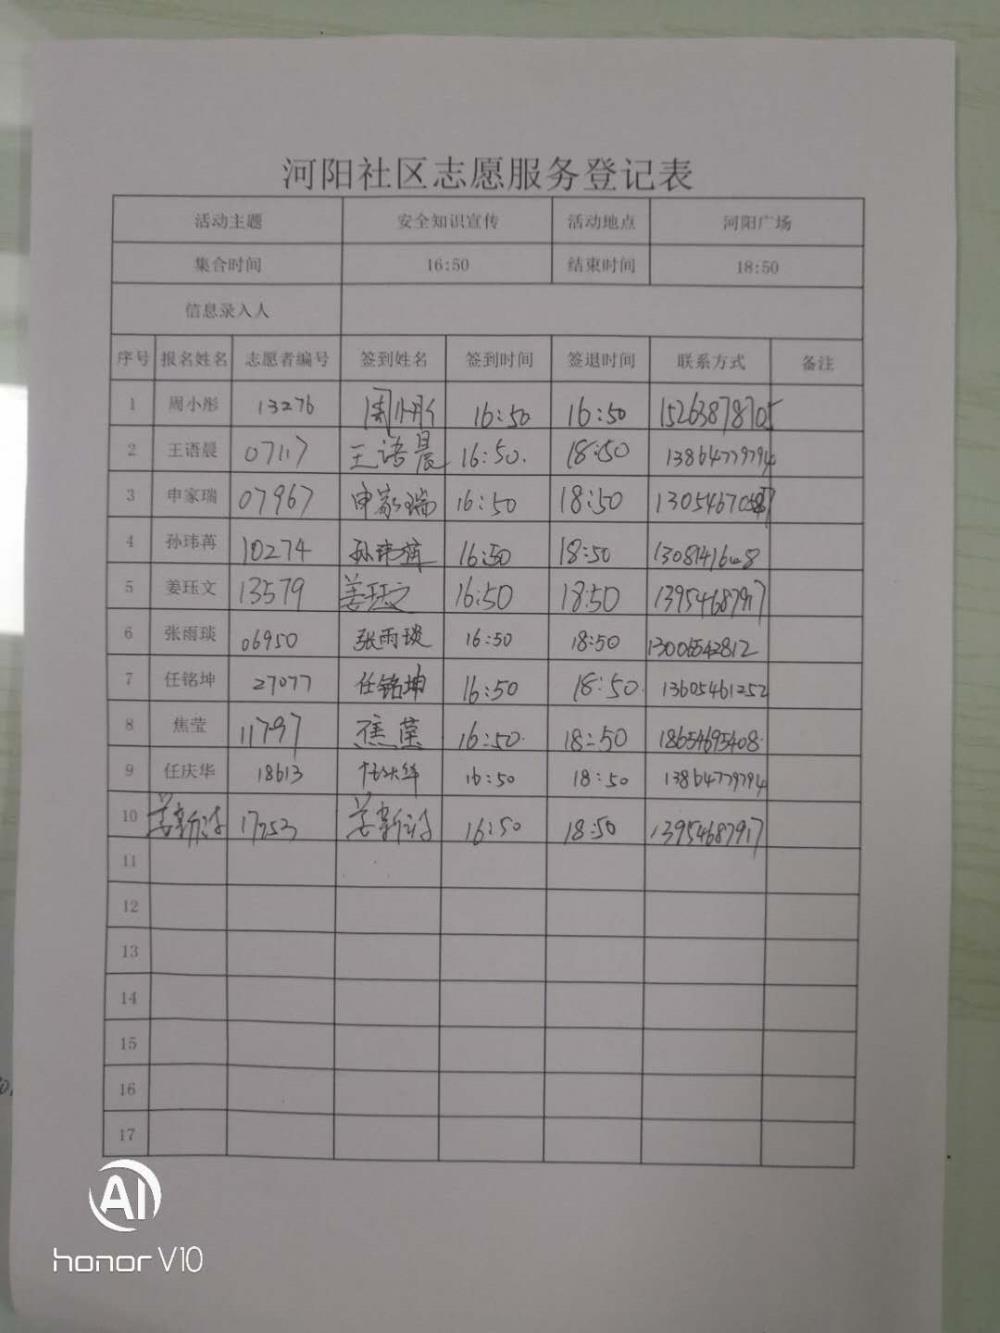 河阳社区志愿服务登记表
活动主题 安全知识宣传 活动地点 河阳广场
集合时间 16:50 结束时间 18:50
信息录入人
序号 报名姓名 志愿者编号 签到姓名 签到时间 签退时间 联系方式 备注
1 周小彤 13276 周小彤 16:50 16:50 15263878705
2 王语晨 07117 王语晨 16:50. 18:50 13864779794
3 申家瑞 07967 申家瑞 16:50 18:50
4 孙玮苒 10274 孙玮苒 16:50 18:50
5 姜珏文 13579 姜珏文 16:50 18:50 13954687917
6 张雨琰 06950 张雨琰 16:50 18:50 13006542812
7 任铭坤 27077 任铭坤 16:50 18:50. 13605461252
8 焦莹 11797 焦莹 16:50. 18:50 18654695408.
9 任庆华 18613 任庆华 16:50 18:50 13864779794
10 17253 16:50 18:50 13954687917
11
12
13
14
15
16
17
AI
honor V10